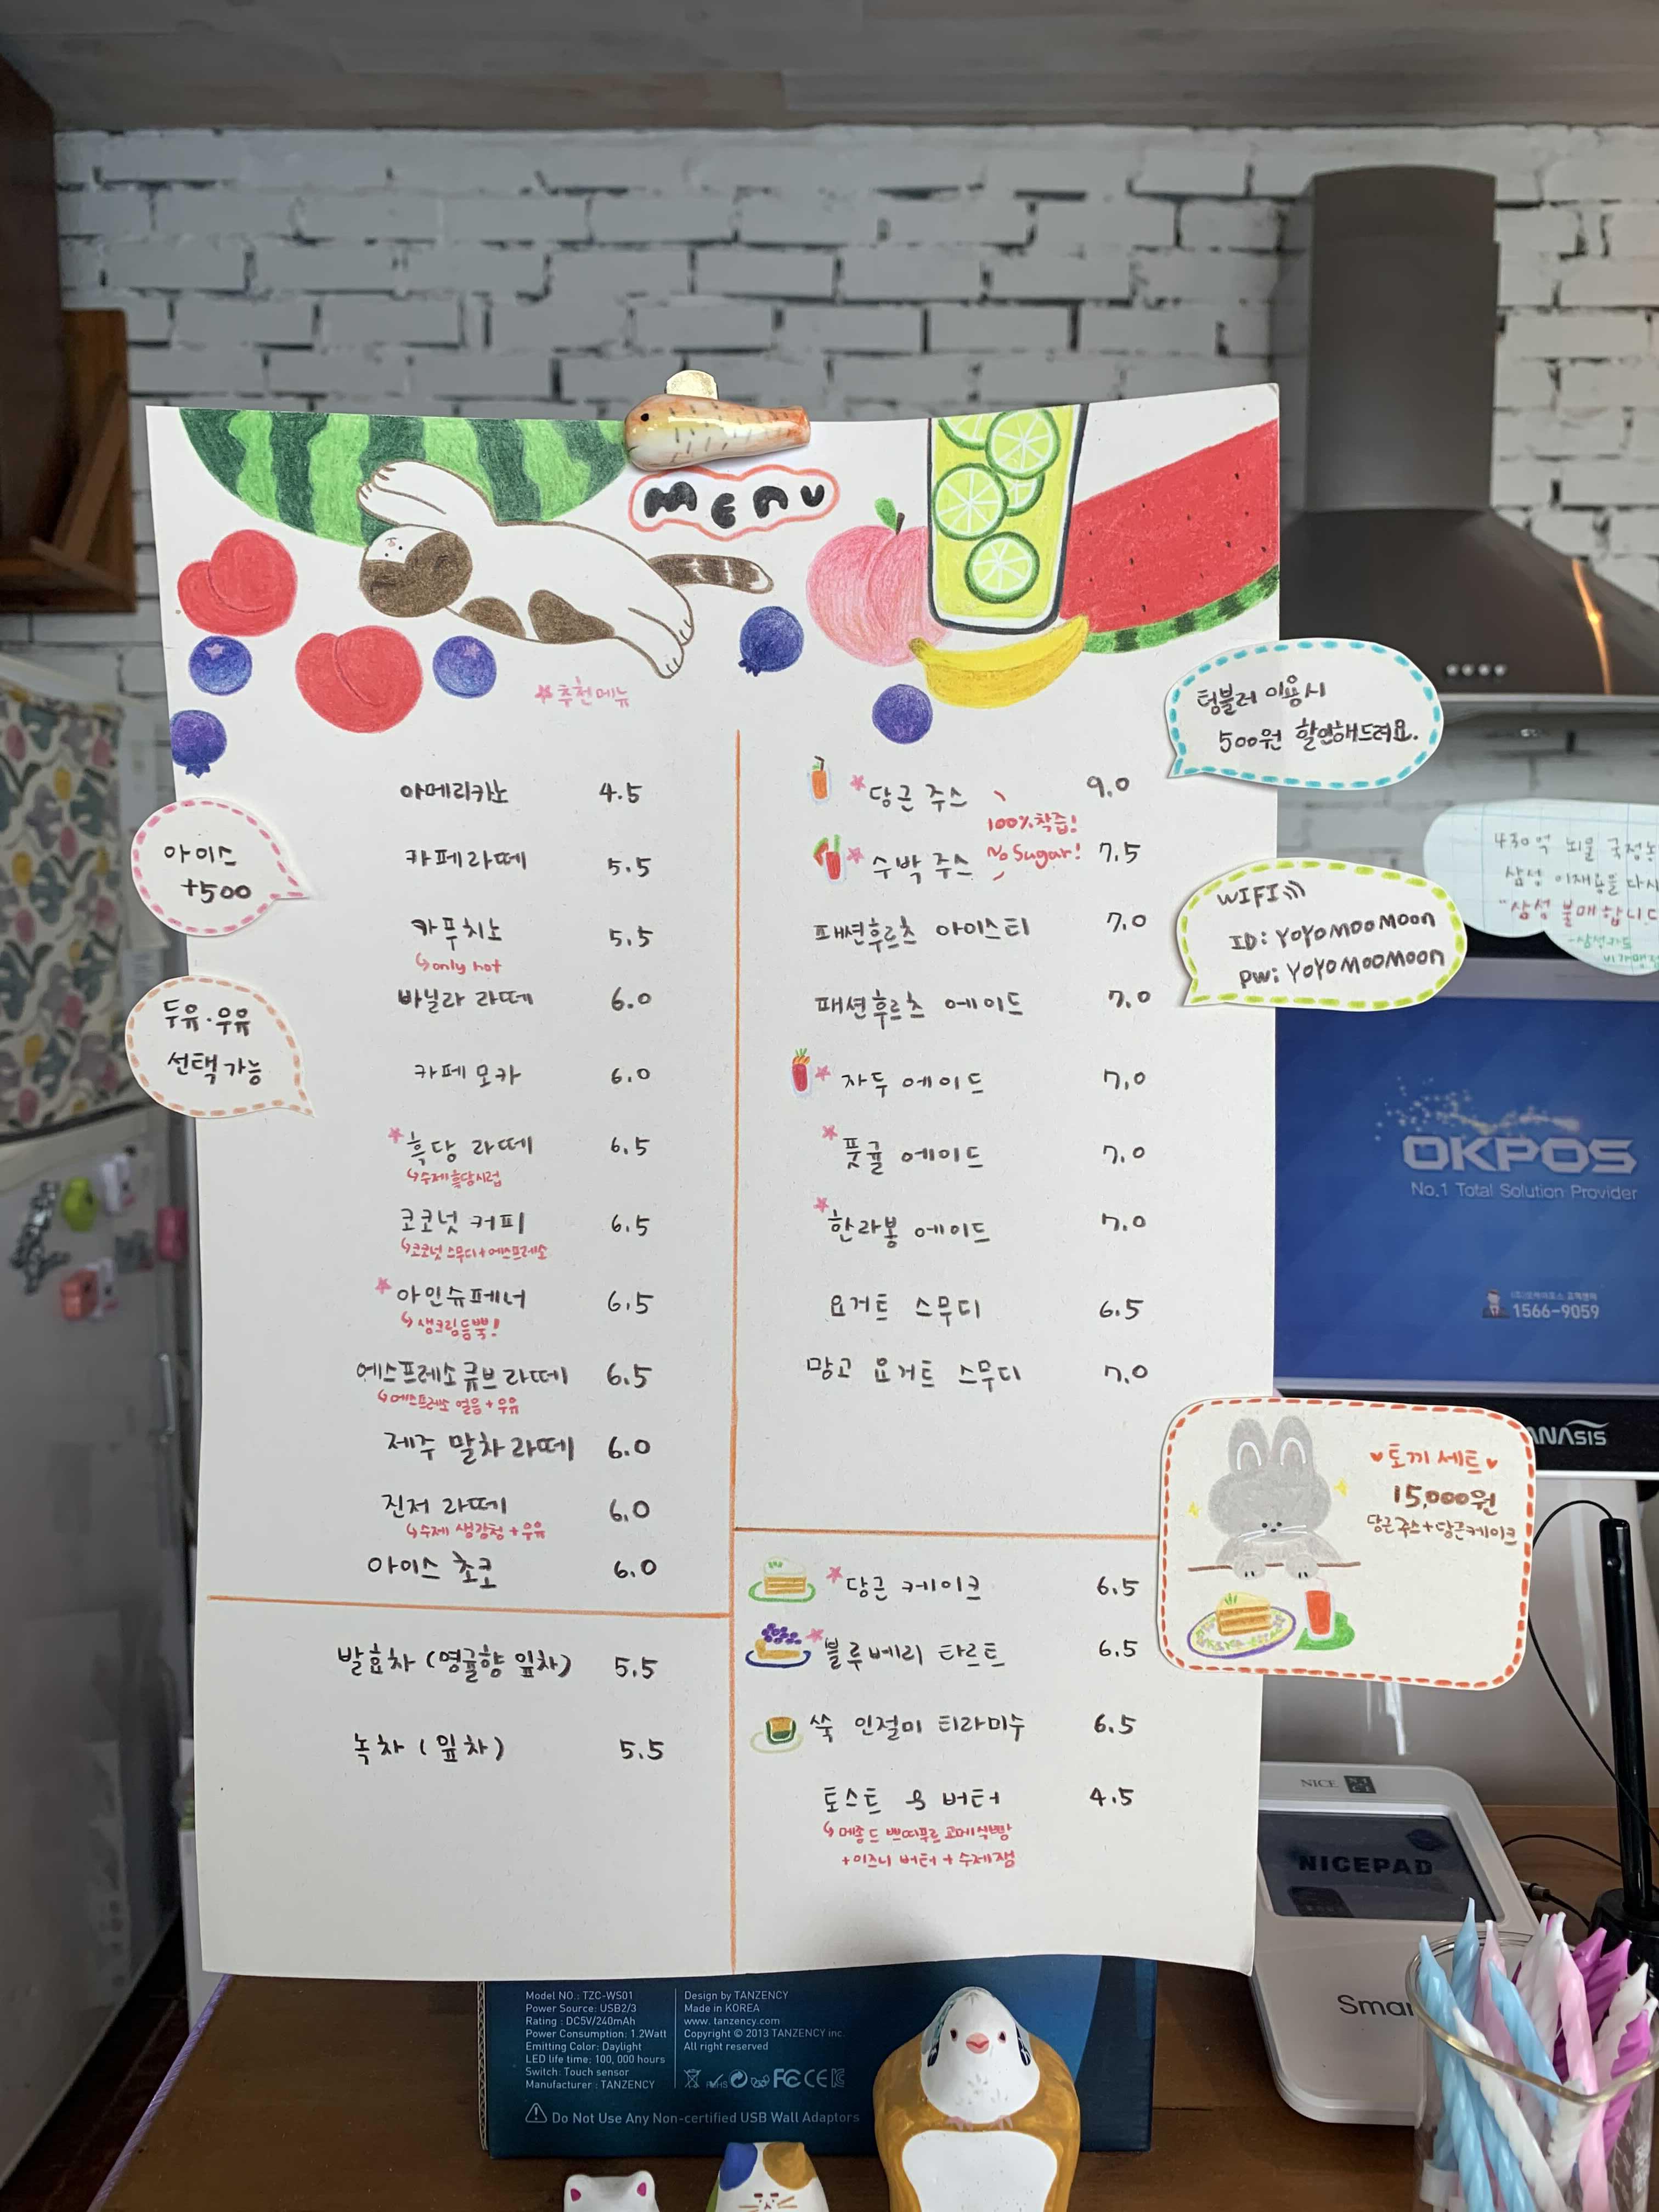 MENU
추천메뉴
아메리카노 4.5
카페라떼 5.5
카푸치노 5.5
only hot
바닐라 라떼 6.0
카페 모카 6.0
흑당 라떼 6.5
수제흑당시럽
코코넛 커피 6.5
코코넛 스무디+에스프레소
아인슈페너 6.5
생크림듬뿍!
에스프레소큐브라떼 6.5
에스프레소 얼음+우유
제주 말차라떼 6.0
진저 라떼 6.0
수제 생강청+우유
아이스 초코 6.0
발효차(영귤향 잎차) 5.5
녹차(잎차) 5.5
아이스
+500
두유·우유
선택가능
당근 주스 9.0
100%착즙!
수박 주스 No Sugar! 7.5
패션후르츠 아이스티 7.0
패션후르츠 에이드 7.0
자두 에이드 7.0
풋귤 에이드 7.0
한라봉 에이드 7.0
요거트 스무디 6.5
망고 요거트 스무디 7.0
당근 케이크 6.5
블루베리 타르트 6.5
쑥 인절미 티라미수 6.5
토스트 & 버터 4.5
메종 드 쁘띠푸르 고메식빵
+이즈니 버터+수제잼
텀블러 이용시
500원 할인해드려요.
WIFI
ID: YOYOMOOMOON
PW: YOYOMOOMOON
430억 뇌물 국정농
삼성 이재용을 다시
"삼성 불매합니다
-삼성카드
비가맹점
♥토끼 세트♥
15,000원
당근주스+당근케이크
OKPOS
No.1 Total Solution Provider
1566-9059
ANASIS
NICE
NICEPAD
Smar
Model NO.: TZC-WS01
Power Source: USB2/3
Rating : DC5V/240mAh
Power Consumption: 1.2Watt
Emitting Color: Daylight
LED life time: 100, 000 hours
Switch: Touch sensor
Manufacturer : TANZENCY
Design by TANZENCY
Made in KOREA
www. tanzency.com
Copyright © 2013 TANZENCY inc.
All right reserved
FC CE
Do Not Use Any Non-certified USB Wall Adaptors